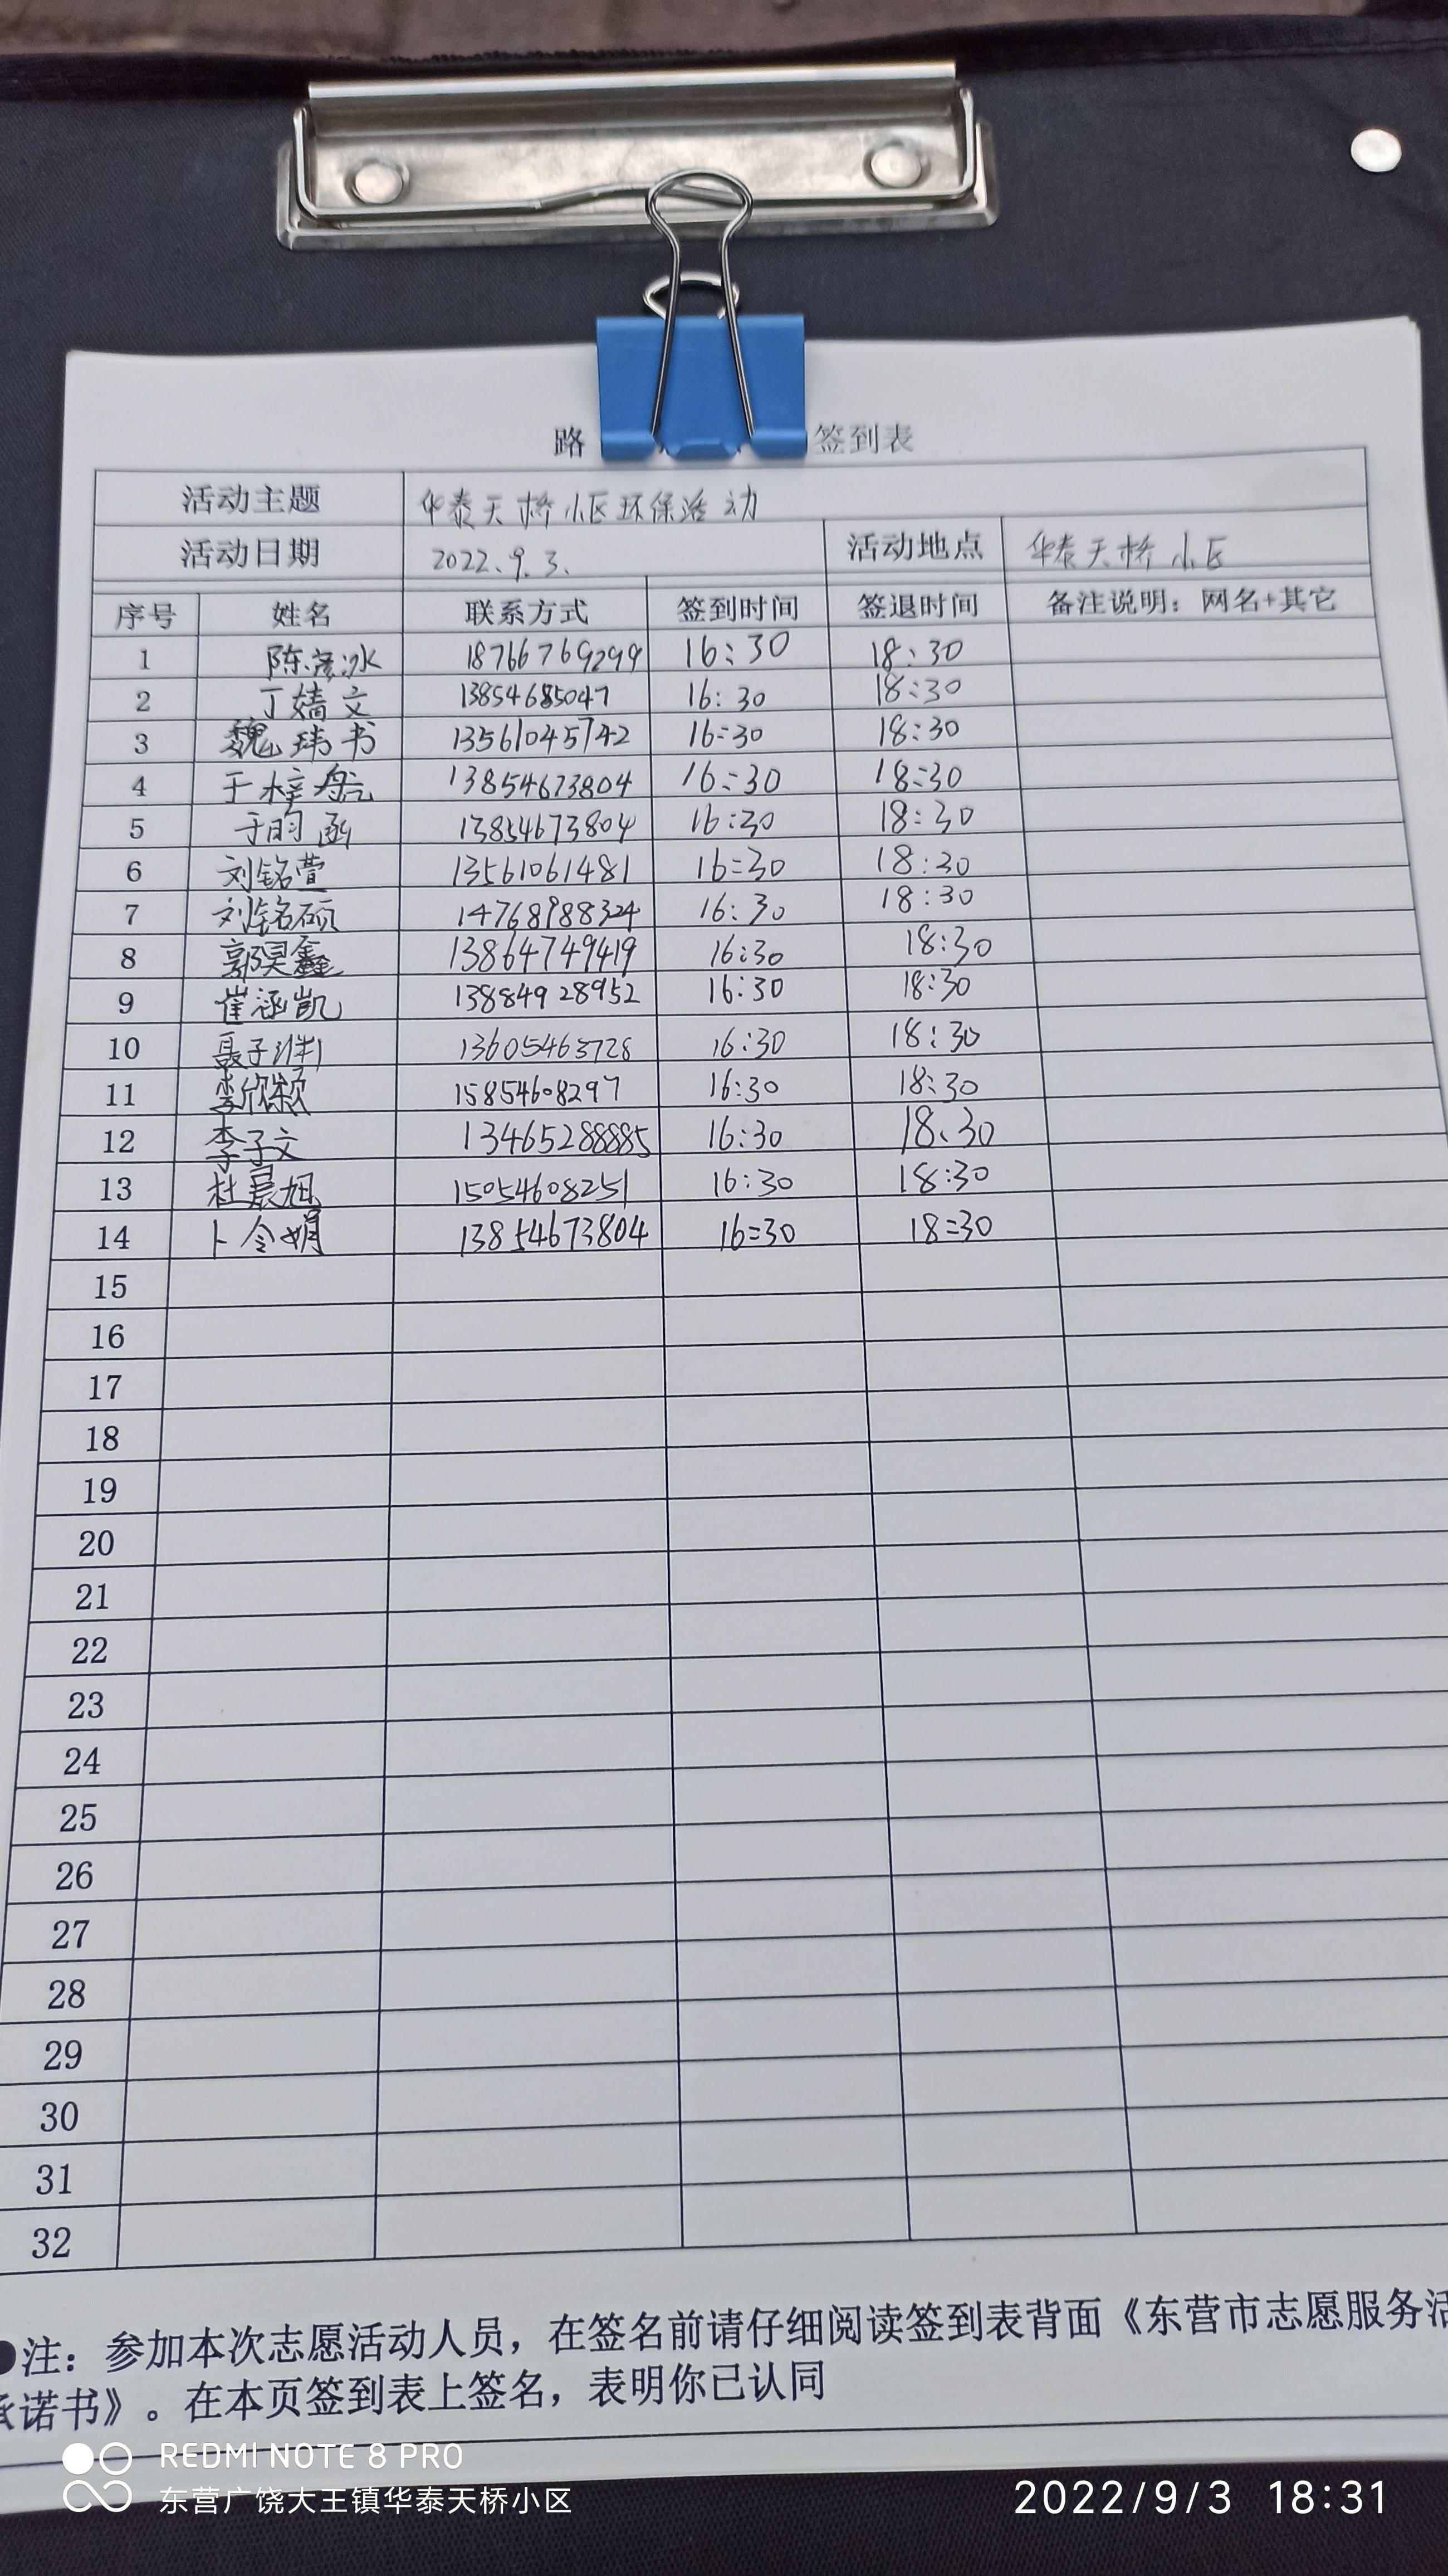 路 签到表
活动主题 华泰天桥小区环保活动
活动日期 2022.9.3. 活动地点 华泰天桥小区
序号 姓名 联系方式 签到时间 签退时间 备注说明：网名+其它
1 陈彦冰 18766769299 16:30 18:30
2 丁婧文 13854685047 16:30 18:30
3 魏玮书 13561045742 16:30 18:30
4 于梓航 13854673804 16:30 18:30
5 于昀函 13854673804 16:30 18:30
6 刘铭萱 13561061481 16:30 18:30
7 刘铭硕 14768988324 16:30 18:30
8 郭昊鑫 13864749419 16:30 18:30
9 崔涵凯 13884928952 16:30 18:30
10 聂子 13605463728 16:30 18:30
11 李欣颖 15854608297 16:30 18:30
12 李子文 13465288885 16:30 18:30
13 杜晨旭 15054608251 16:30 18:30
14 卜令娟 13854673804 16:30 18:30
15
16
17
18
19
20
21
22
23
24
25
26
27
28
29
30
31
32
●注：参加本次志愿活动人员，在签名前请仔细阅读签到表背面《东营市志愿服务活
承诺书》。在本页签到表上签名，表明你已认同
REDMI NOTE 8 PRO
东营广饶大王镇华泰天桥小区
2022/9/3 18:31